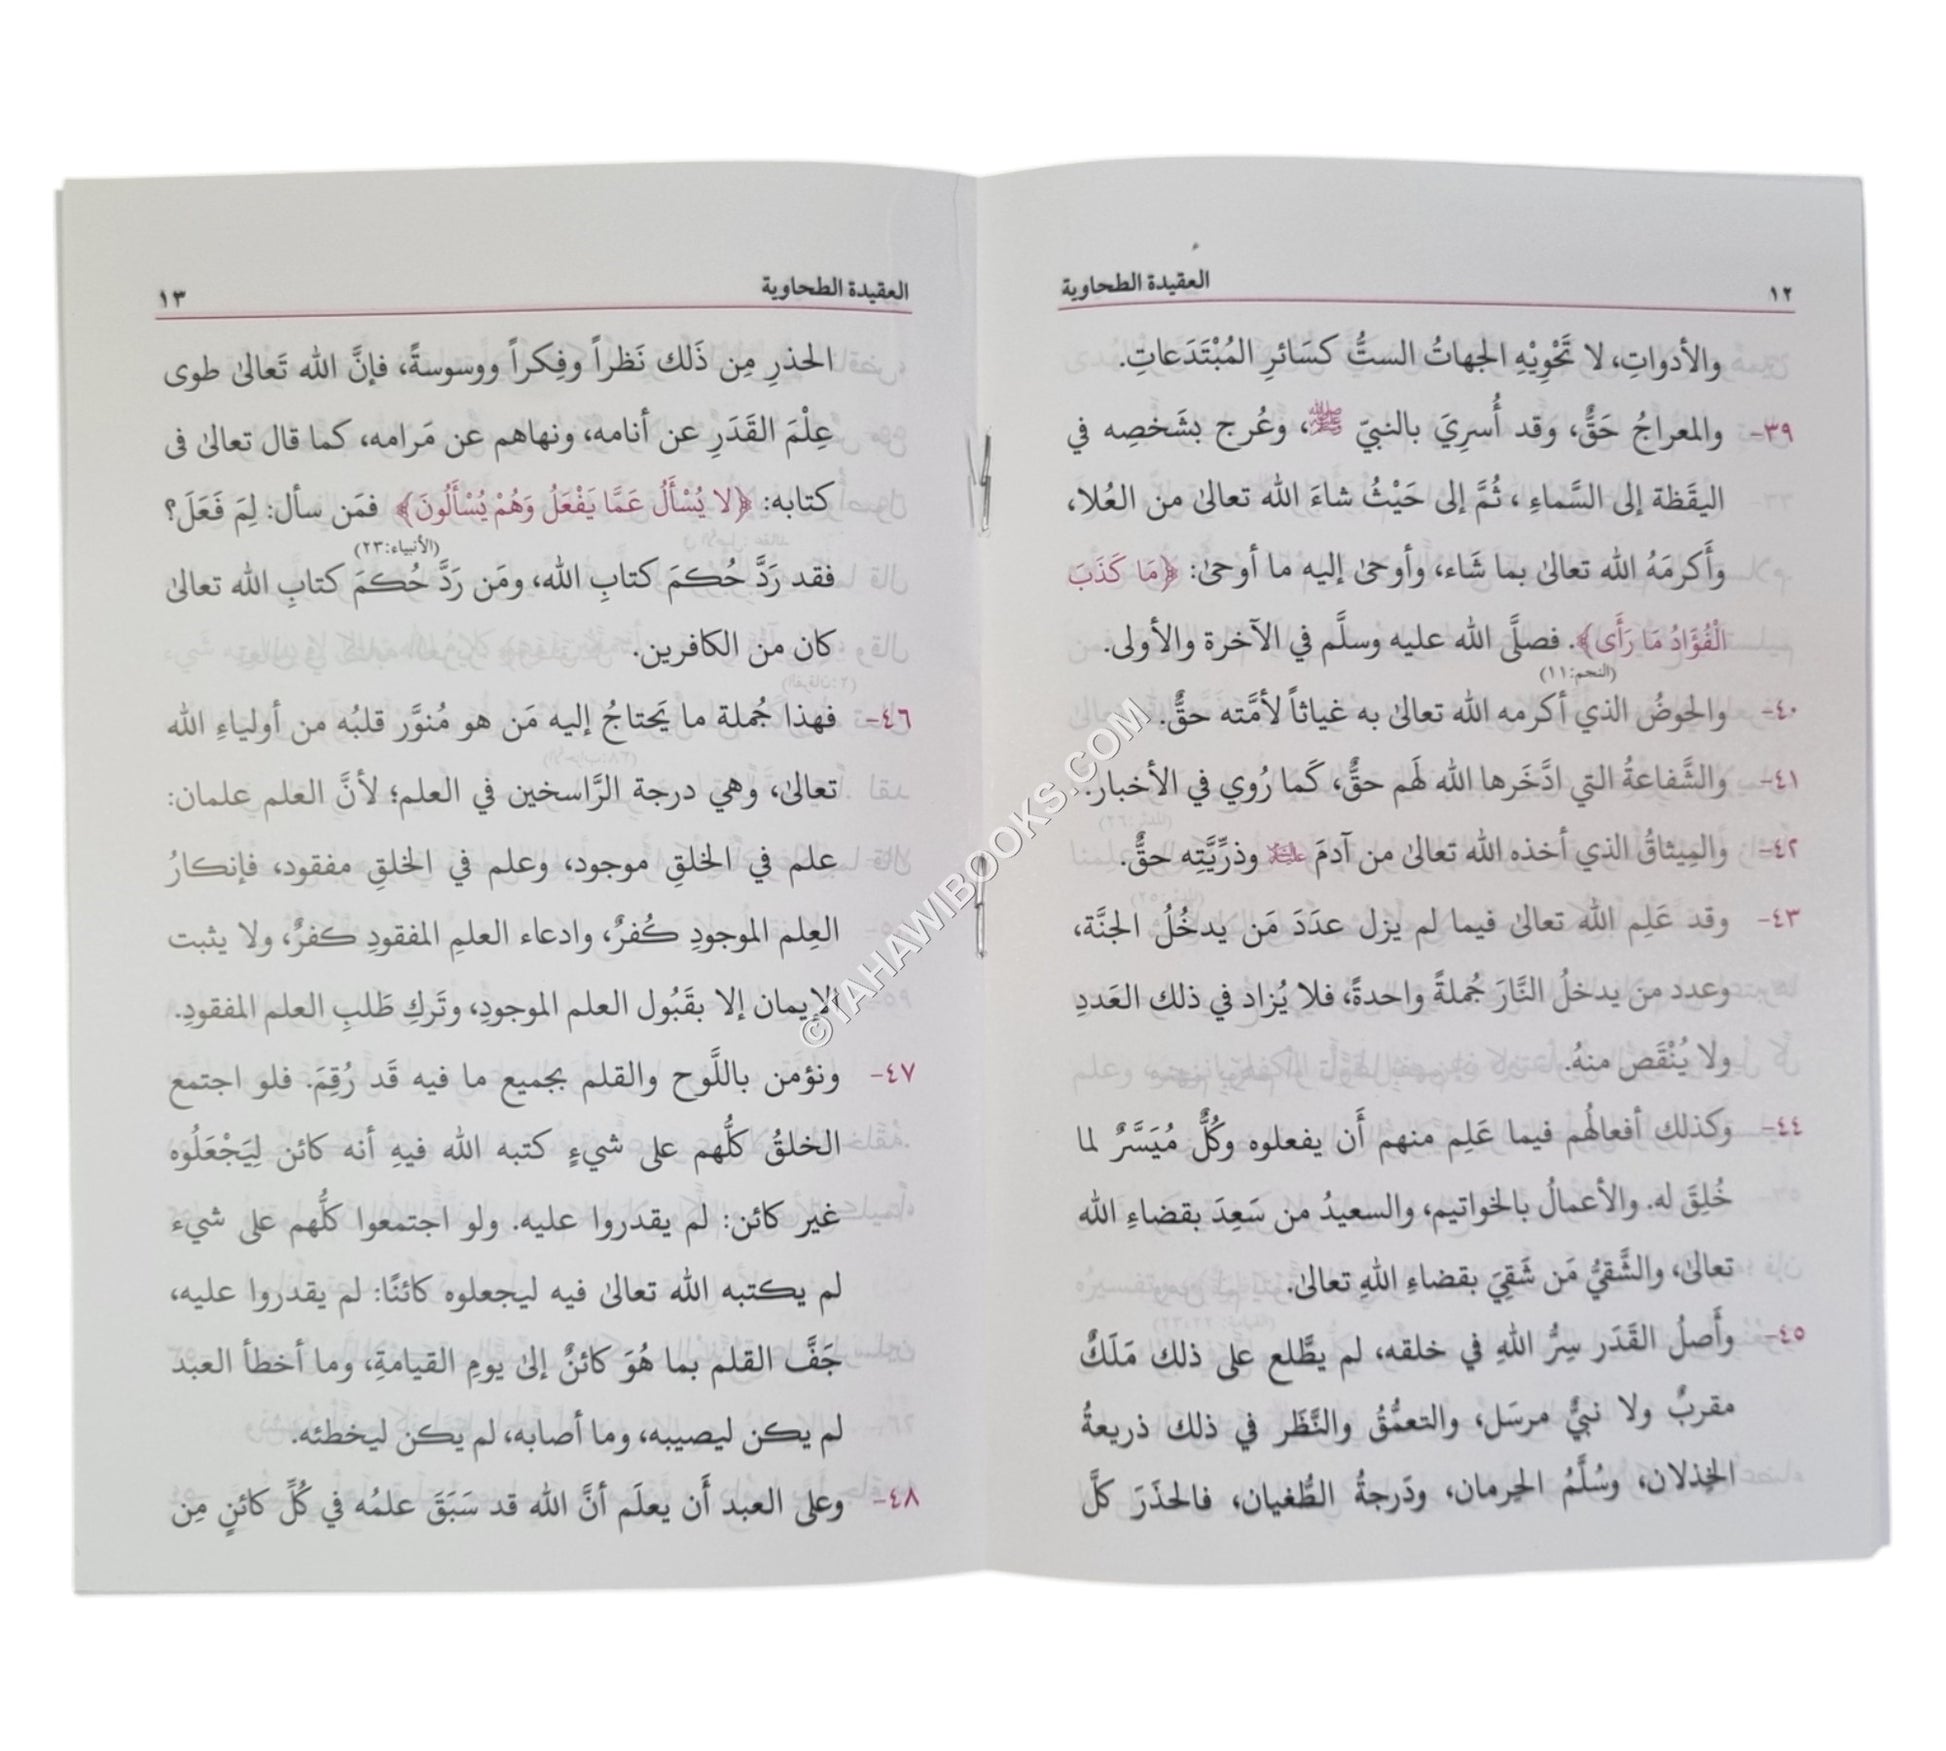 ١٢ العقيدة الطحاوية
والأدواتِ، لا تَحْوِيْهِ الجهاتُ الستُّ كسَائرِ المُبْتَدَعاتِ.
٣٩- والمعراجُ حَقٌّ، وقد أُسرِيَ بالنبيّ ﷺ، وعُرج بشَخصِه في
اليقَظة إلى السَّماءِ، ثُمَّ إلى حَيْثُ شاءَ الله تعالىٰ من العُلا،
وَأَكرمَهُ الله تعالىٰ بما شَاء، وأوحىٰ إليه ما أوحىٰ: ﴿مَا كَذَبَ
الْفُؤَادُ مَا رَأَى﴾. فصلَّى الله عليه وسلَّم في الآخرة والأولى.
(النجم:١١)
٤٠- والحوضُ الذي أكرمه الله تعالىٰ به غياثاً لأمَّته حقٌّ.
٤١- والشَّفاعةُ التي ادَّخَرها الله لَهم حقٌّ، كَما رُوي في الأخبار.
٤٢- والمِيثاقُ الذي أخذه الله تعالىٰ من آدمَ عليه السلام وذرِّيَّتِه حقٌّ.
٤٣- وقد عَلِم الله تعالىٰ فيما لم يزل عدَدَ مَن يدخُلُ الجنَّة،
وعدد من يدخلُ النَّارَ جُملةً واحدةً، فلا يُزاد في ذلك العَددِ
ولا يُنْقَص منهُ.
٤٤- وكذلك أفعالُهم فيما عَلِم منهم أَن يفعلوه وكُلٌّ مُيَسَّرٌ لما
خُلِقَ له. والأعمالُ بالخواتيم، والسعيدُ من سَعِدَ بقضاءِ الله
تعالىٰ، والشَّقيُّ مَن شَقِيَ بقضاءِ اللهِ تعالىٰ.
٤٥- وأَصلُ القَدَر سِرُّ اللهِ في خلقه، لم يطَّلع على ذلك مَلَكٌ
مقربٌ ولا نبيٌّ مرسَل، والتعمُّقُ والنَّظَر في ذلك ذريعةُ
الخِذلان، وسُلَّمُ الحِرمان، ودَرجةُ الطُّغيان، فالحذَرَ كلَّ
العقيدة الطحاوية ١٣
الحذرِ مِن ذَلك نَظراً وفِكراً ووسوسةً، فإنَّ الله تَعالىٰ طوى
عِلْمَ القَدَرِ عن أنامه، ونهاهم عن مَرامه، كما قال تعالىٰ فى
كتابه: ﴿لا يُسْأَلُ عَمَّا يَفْعَلُ وَهُمْ يُسْأَلُونَ﴾ فمَن سأل: لِمَ فَعَلَ؟
(الأنبياء:٢٣)
فقد رَدَّ حُكمَ كتابِ الله، ومَن رَدَّ حُكمَ كتابِ الله تعالىٰ
كان من الكافرين.
٤٦- فهذا جُملة ما يَحتاجُ إليه مَن هو مُنوَّر قلبُه من أولياءِ الله
تعالىٰ، وهي درجة الرَّاسخين في العلم؛ لأنَّ العلم علمان:
علم في الخلقِ موجود، وعلم في الخلقِ مفقود، فإنكارُ
العِلم الموجودِ كُفرٌ، وادعاء العلمِ المفقودِ كفرٌ، ولا يثبت
الإيمان إلا بقَبُول العلم الموجودِ، وتَركِ طَلبِ العلم المفقودِ.
٤٧- ونؤمن باللَّوح والقلم بجميع ما فيه قَد رُقِمَ. فلو اجتمع
الخلقُ كلُّهم على شيءٍ كتبه الله فيهِ أنه كائن لِيَجْعَلُوه
غير كائن: لم يقدروا عليه. ولو اجتمعوا كلُّهم على شيء
لم يكتبه الله تعالىٰ فيه ليجعلوه كائنًا: لم يقدروا عليه،
جَفَّ القلم بما هُوَ كائنٌ إلىٰ يومِ القيامةِ، وما أخطأ العبد
لم يكن ليصيبه، وما أصابه، لم يكن ليخطئه.
٤٨- وعلى العبد أَن يعلَم أنَّ الله قد سَبَقَ علمُه في كُلِّ كائنٍ مِن
©TAHAWIBOOKS.COM